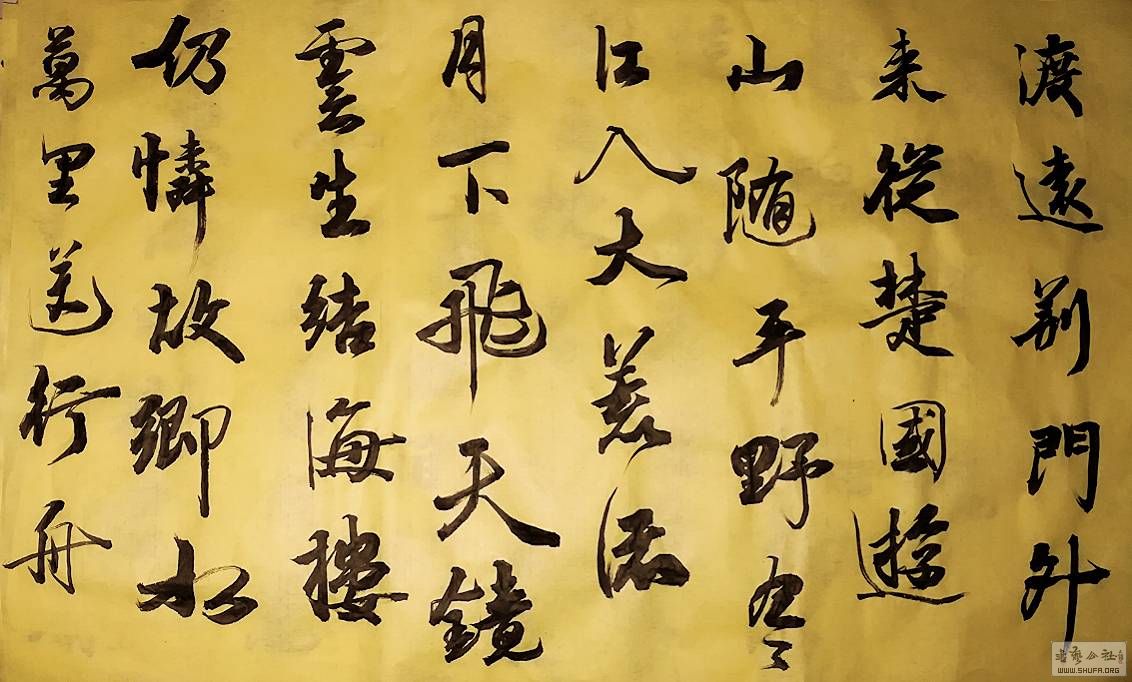 渡遠荆門外
来從楚國遊
山随平野尽
江入大荒流
月下飛天鏡
雲生結海樓
仍憐故鄉水
萬里送行舟
書藝公社
WWW.SHUFA.ORG